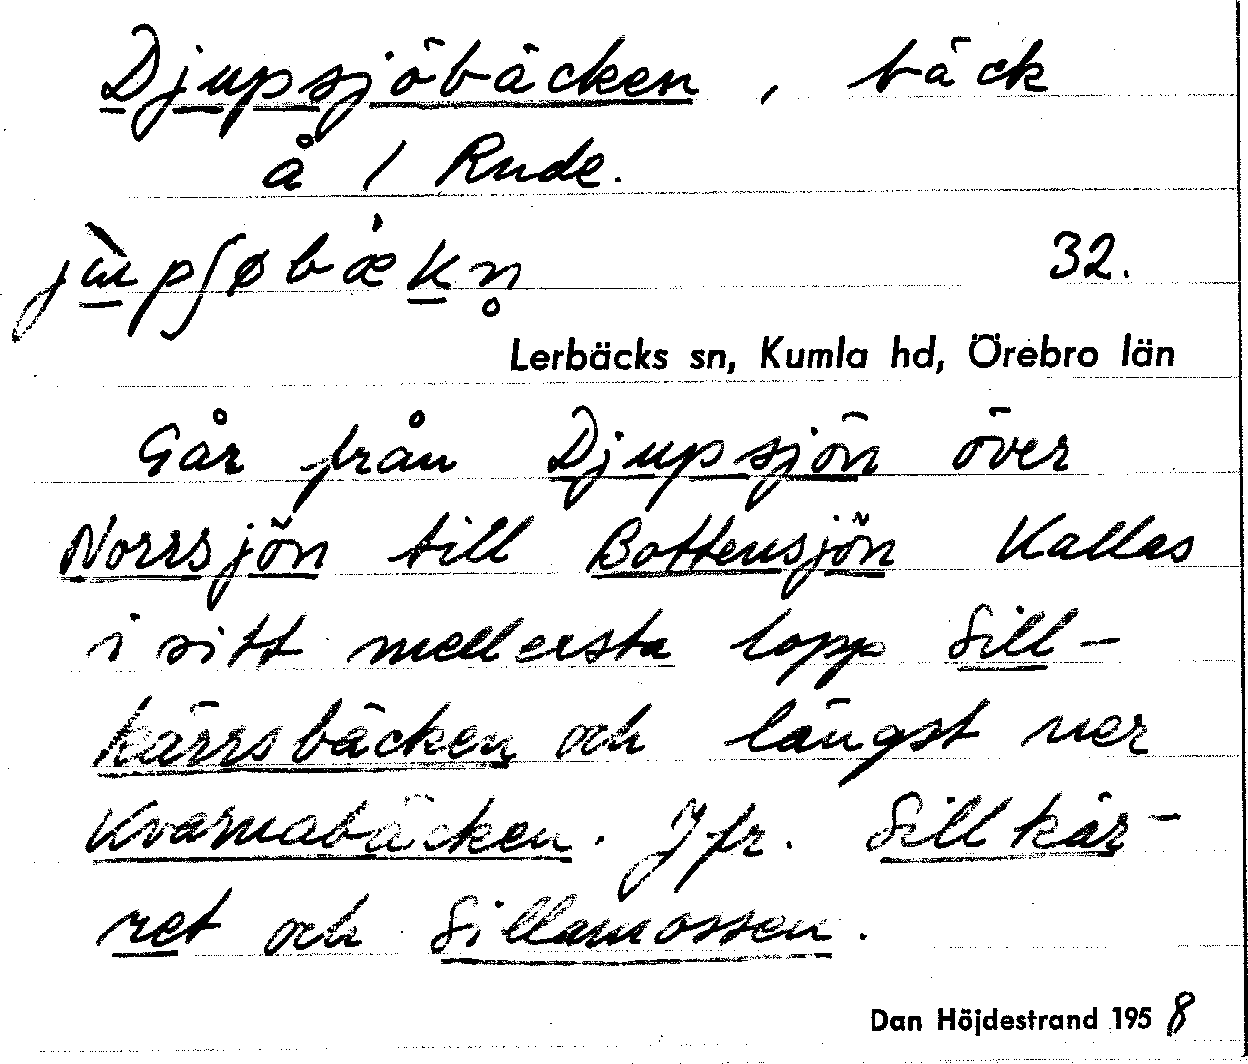 Djupsjöbäcken, bäck
å 1 Rude.
jùpʃøbækn̥ 32.
Lerbäcks sn, Kumla hd, Örebro län
Går från Djupsjön över
Norrsjön till Bottensjön Kallas
i sitt mellersta lopp Sill-
kärrsbäcken och längst ner
Kvarnabäcken. Jfr. Sillkär-
ret och Sillamossen.
Dan Höjdestrand 1958